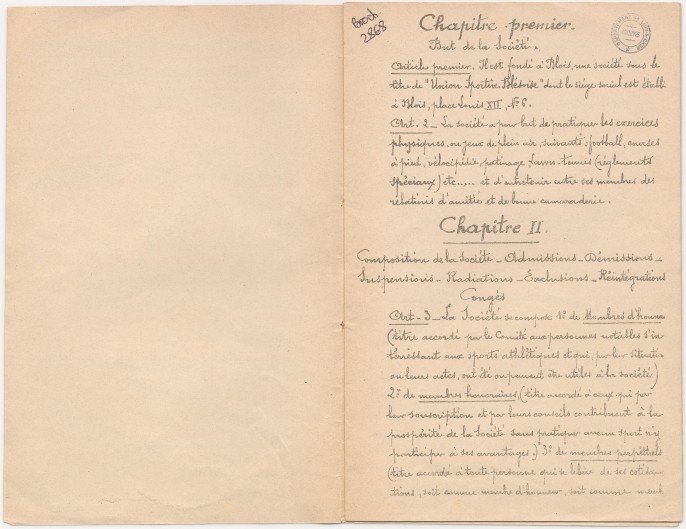 Broch
2868
Chapitre premier.
But de la Société.
Article premier. Il est fondé à Blois, une société sous le
titre de "Union Sportive Blésoise" dont le siège social est établi
à Blois, place Louis XII, N° 6.
Art. 2 _ La société a pour but de pratiquer les exercices
physiques, ou jeux de plein air, suivants: football, courses
à pied, vélocipédie, patinage, lawn-tennis (règlements
spéciaux) etc..,... et d'entretenir entre ses membres des
relations d'amitié et de bonne camaraderie.
Chapitre II.
Composition de la Société _ Admissions _ Démissions _
Suspensions _ Radiations _ Exclusions _ Réintégrations
Congés
Art. 3 _ La Société se compose 1° de Membres d'honneur
(titre accordé par le Comité aux personnes notables s'in-
téressant aux sports athlétiques et qui, par leur situation
ou leurs actes, ont été ou peuvent être utiles à la société)
2° de membres honoraires, (titre accordé à ceux qui par
leur souscription et par leurs conseils contribuent à la
prospérité de la Société sans pratiquer aucun sport n'y
participer à ses avantages.) 3° de membres perpétuels
(titre accordé à toute personne qui se libère de ses cotisa-
tions, soit comme membre d'honneur, soit comme memb